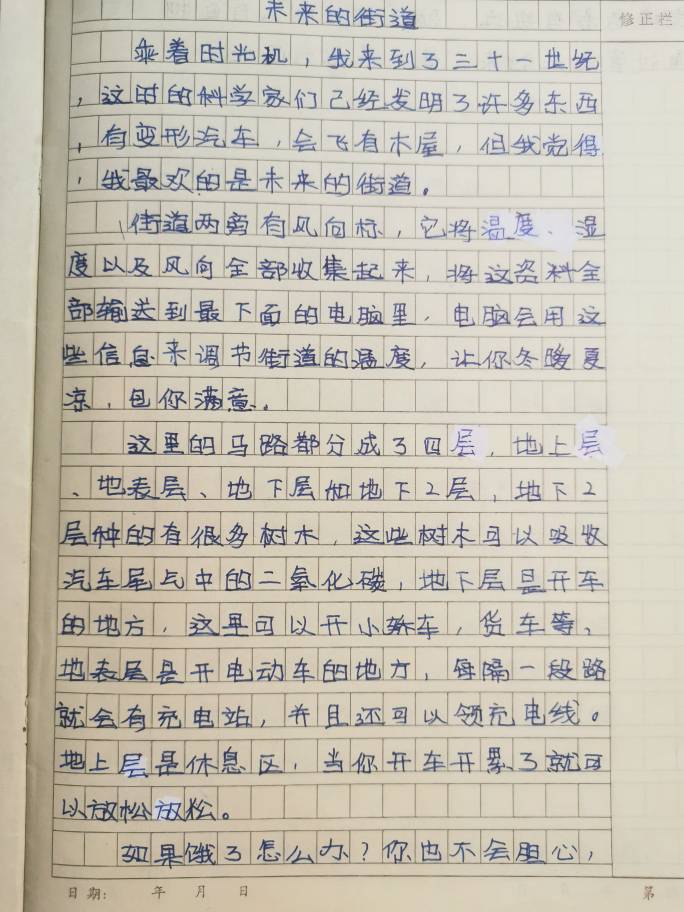 未来的街道
修正栏
乘着时光机，我来到了三十一世纪
，这时的科学家们已经发明了许多东西
，有变形汽车，会飞有木屋，但我觉得
，我最欢的是未来的街道。
街道两旁有风向标，它将温度、湿
度以及风向全部收集起来，将这资料全
部输送到最下面的电脑里，电脑会用这
些信息来调节街道的温度，让你冬暖夏
凉，包你满意。
这里的马路都分成了四层，地上层
、地表层、地下层和地下2层，地下2
层种的有很多树木，这些树木可以吸收
汽车尾气中的二氧化碳，地下层是开车
的地方，这里可以开小轿车，货车等，
地表层是开电动车的地方，每隔一段路
就会有充电站，并且还可以领充电线。
地上层是休息区，当你开车开累了就可
以放松放松。
如果饿了怎么办？你也不会担心，
日期： 年 月 日 第